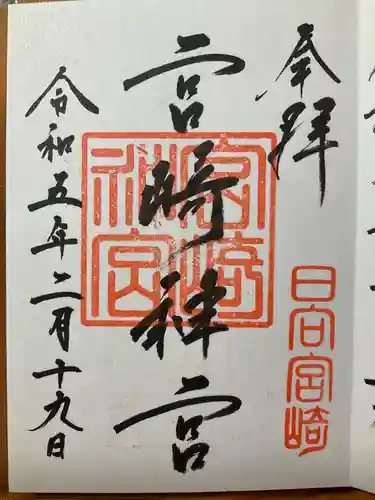 奉拝
日向宮崎
宮﨑神宮
宮崎神宮
令和五年二月十九日